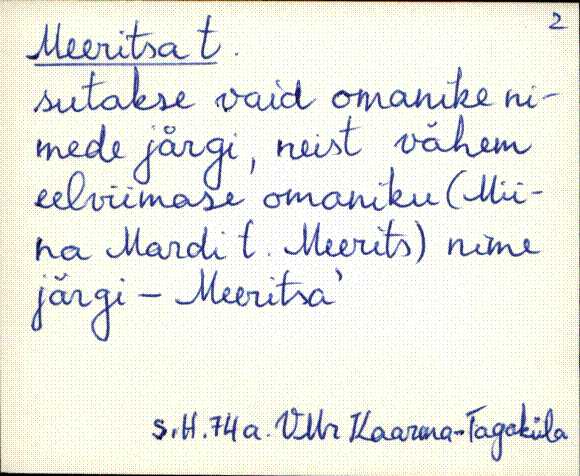 2
Meeritsa t.
sutakse vaid omanike ni-
mede järgi, neist vähem
eelviimase omaniku (Mii-
na Mardi t. Meerits) nime
järgi – Meeritsa'
s.H.74a. VMr Kaarma-Tagaküla